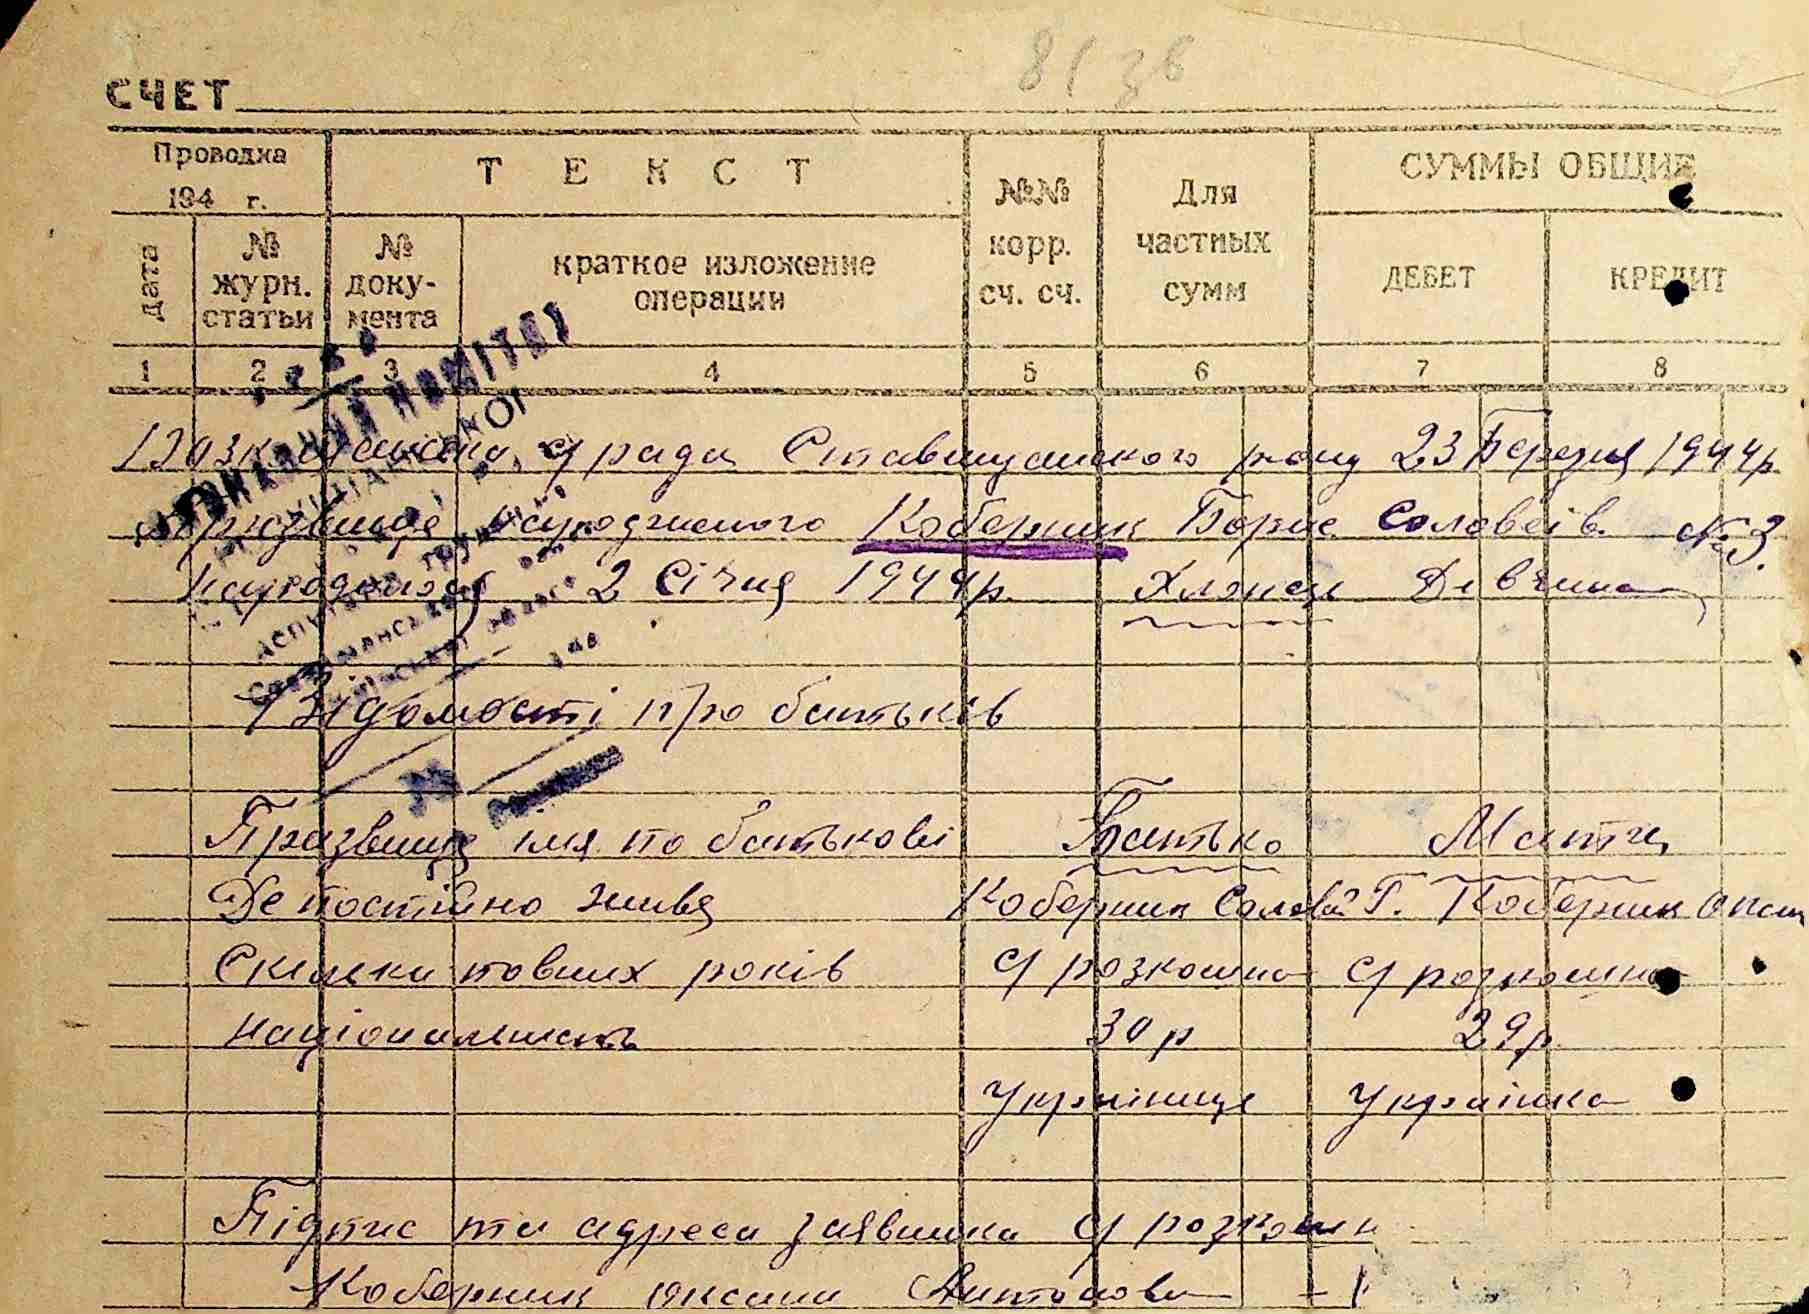 8136
СЧЕТ
Проводка
194 г.
ТЕКСТ
№№ корр. сч. сч.
Для частных сумм
СУММЫ ОБЩИЕ
Дата
№ журн. статьи
№ доку-мента
краткое изложение операции
ДЕБЕТ
КРЕДИТ
1 2 3 4 5 6 7 8
с/рада Ставищанського р-ону 23 Березня 1944р.
Прізвище народженого Коберник Борис Соловеів. №3.
народився 2 Січня 1944р. Хлопець Дівчина
Відомості про батьків
Празвище імя по батькові Батько Мати
Де постійно живе Коберник Соловей Г. Коберник
Скільки повних років с/ розкошна с/ розкошна
національність 30 р 29 р.
Українице Українка
Підпис та адреса заявника с/ розкошн
Коберник оксани Антонови